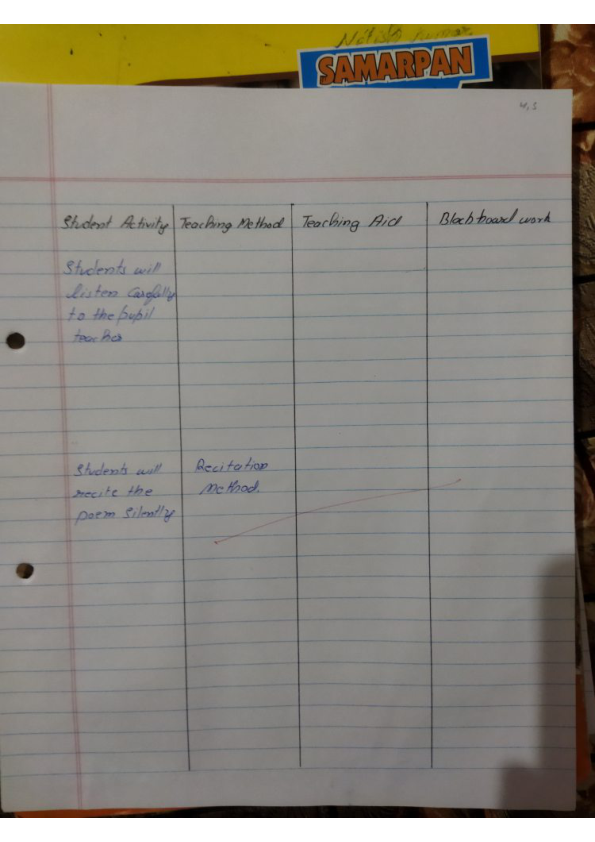 Nitish Kumar.
SAMARPAN
Student Activity Teaching Method Teaching Aid Blackboard work
Students will
listen carefully
to the pupil
teacher
Students will Recitation
recite the Method.
poem silently